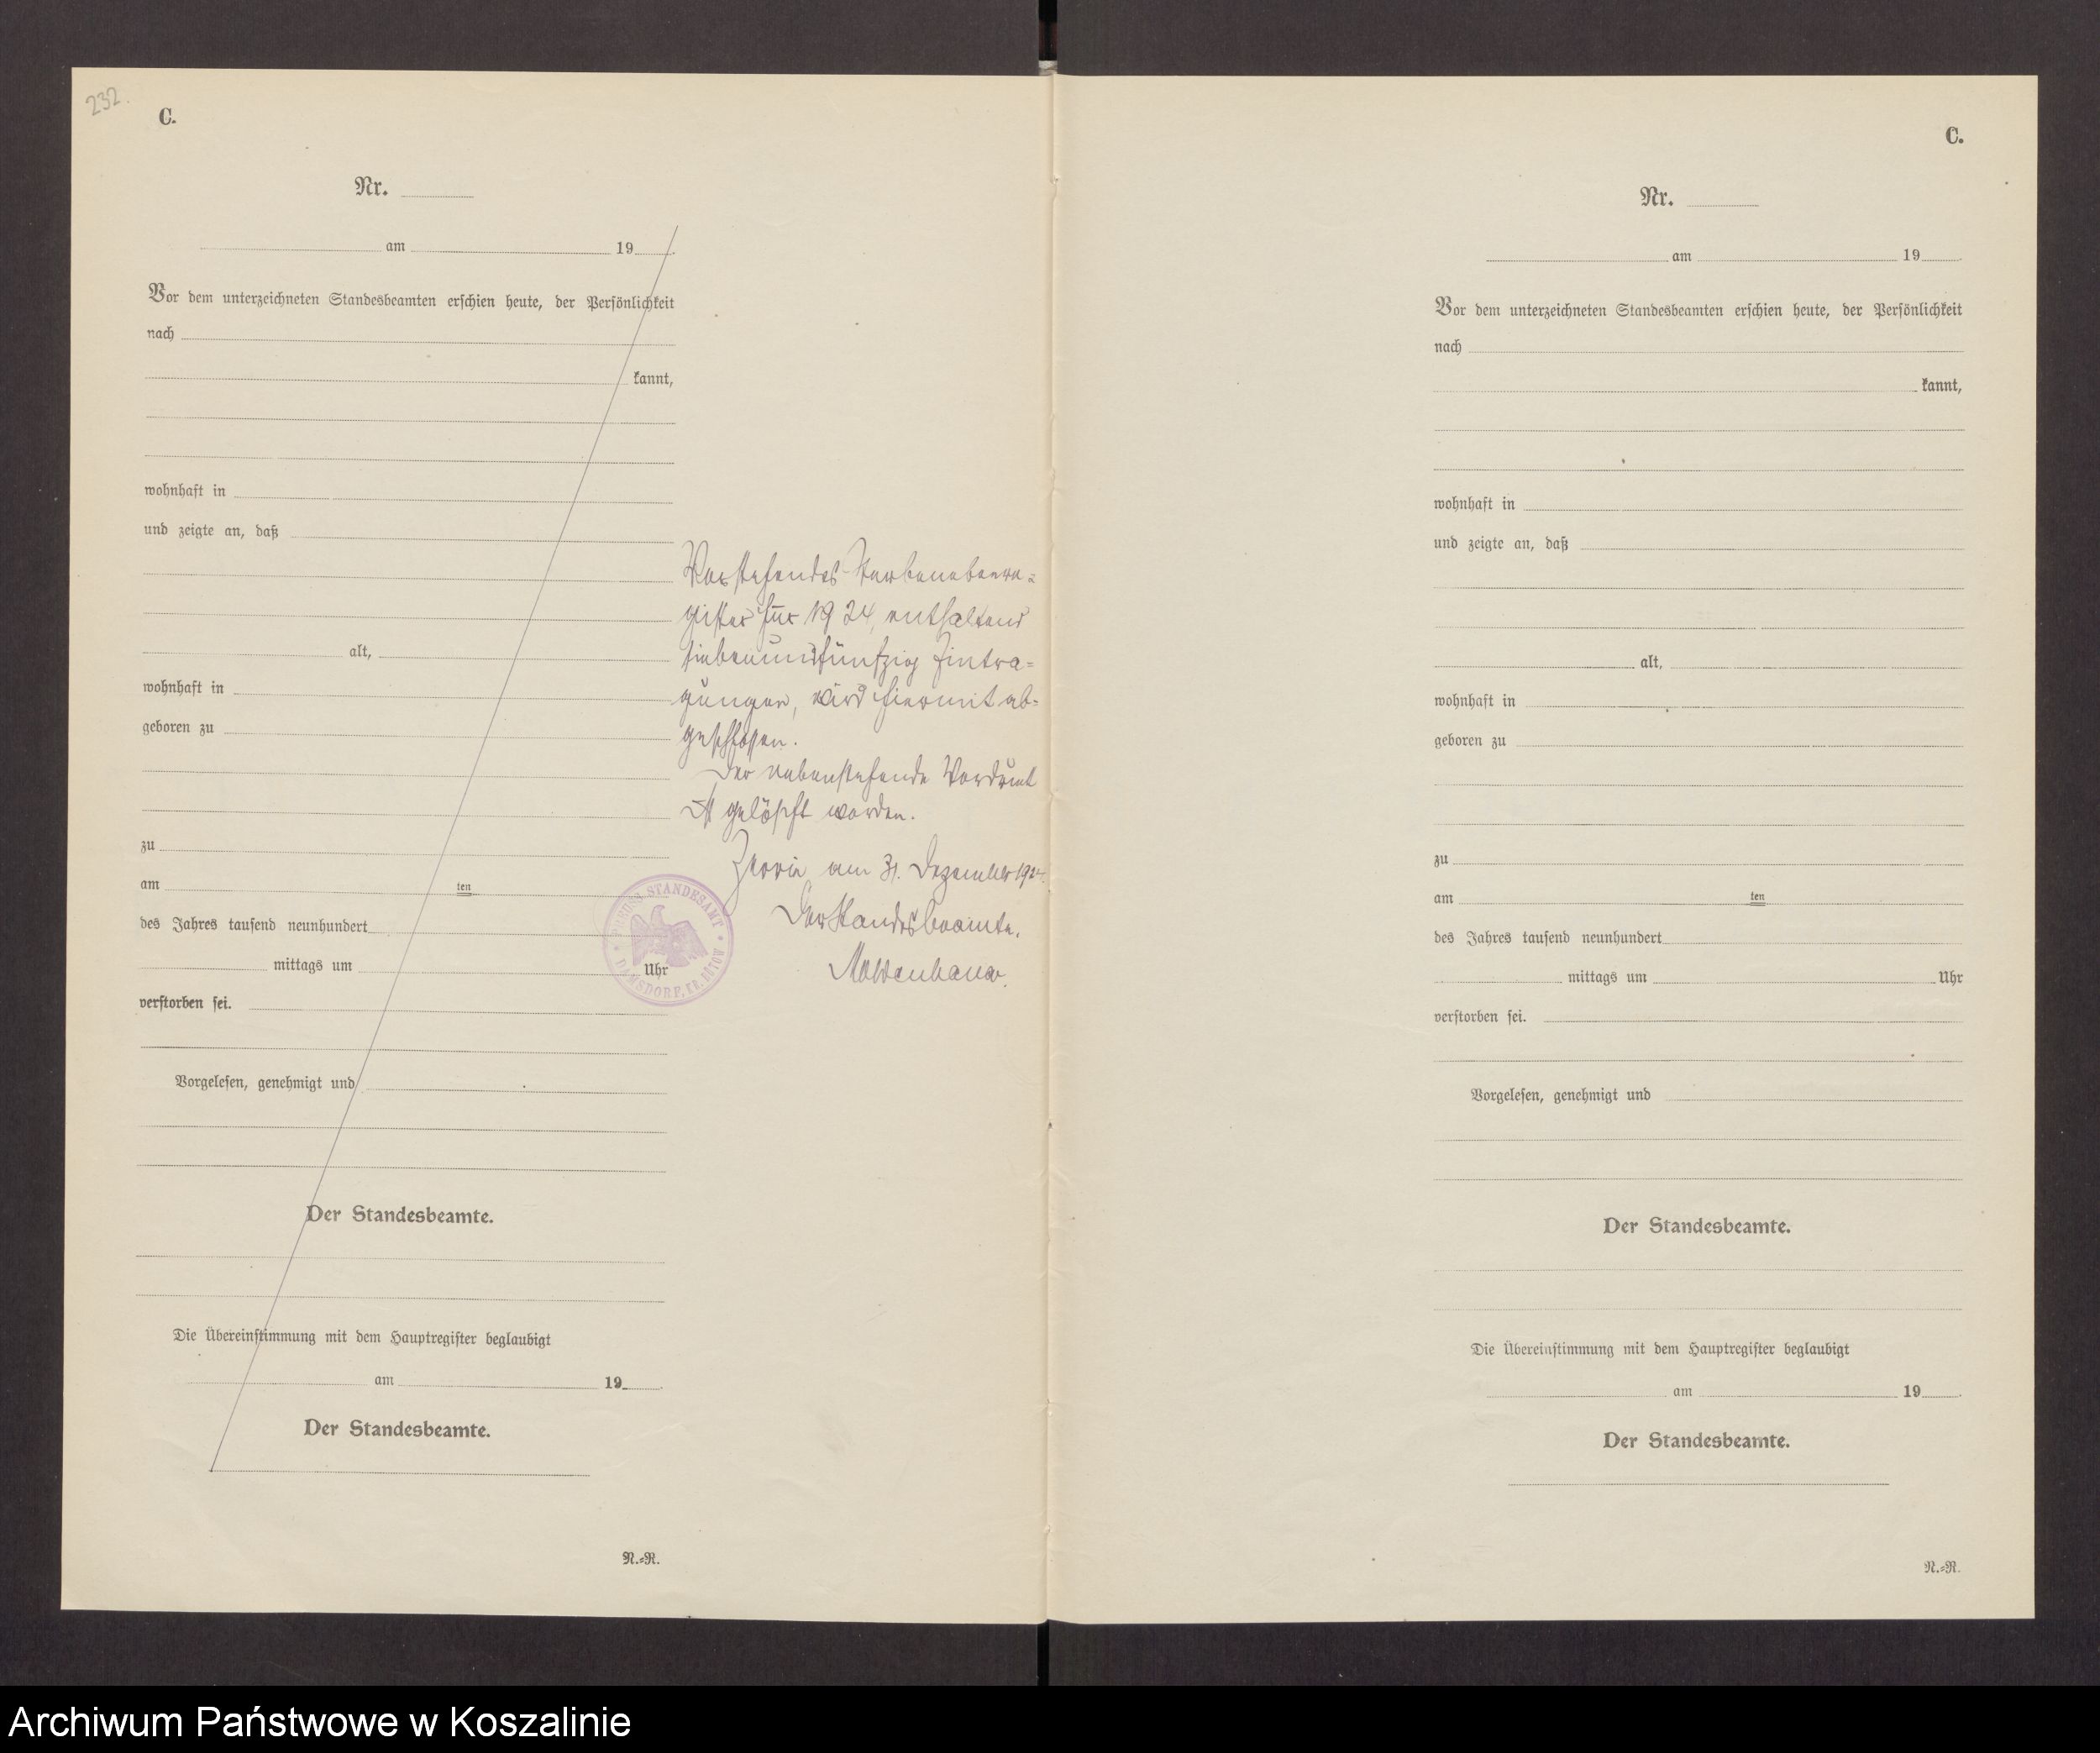 232.
C.
Nr.
am 19
Vor dem unterzeichneten Standesbeamten erschien heute, der Persönlichkeit
nach
kannt,
wohnhaft in
und zeigte an, daß
alt,
wohnhaft in
geboren zu
zu
am ten
des Jahres tausend neunhundert
mittags um Uhr
verstorben sei.
Vorgelesen, genehmigt und
Der Standesbeamte.
Die Übereinstimmung mit dem Hauptregister beglaubigt
am 19
Der Standesbeamte.
N.=R.
Vorstehendes Sterbenebenre=
gister für 1924, enthaltend
siebenundfünfzig Eintra=
gungen, wird hiermit ab=
geschlossen.
Der nebenstehende Vordruck
ist gelöscht worden.
am 31. Dezember 1924.
Der Standesbeamte.
Moldenhauer.
PREUSS. STANDESAMT
DAMSDORF, KR. BÜTOW
C.
Nr.
am 19
Vor dem unterzeichneten Standesbeamten erschien heute, der Persönlichkeit
nach
kannt,
wohnhaft in
und zeigte an, daß
alt,
wohnhaft in
geboren zu
zu
am ten
des Jahres tausend neunhundert
mittags um Uhr
verstorben sei.
Vorgelesen, genehmigt und
Der Standesbeamte.
Die Übereinstimmung mit dem Hauptregister beglaubigt
am 19
Der Standesbeamte.
N.=R.
Archiwum Państwowe w Koszalinie